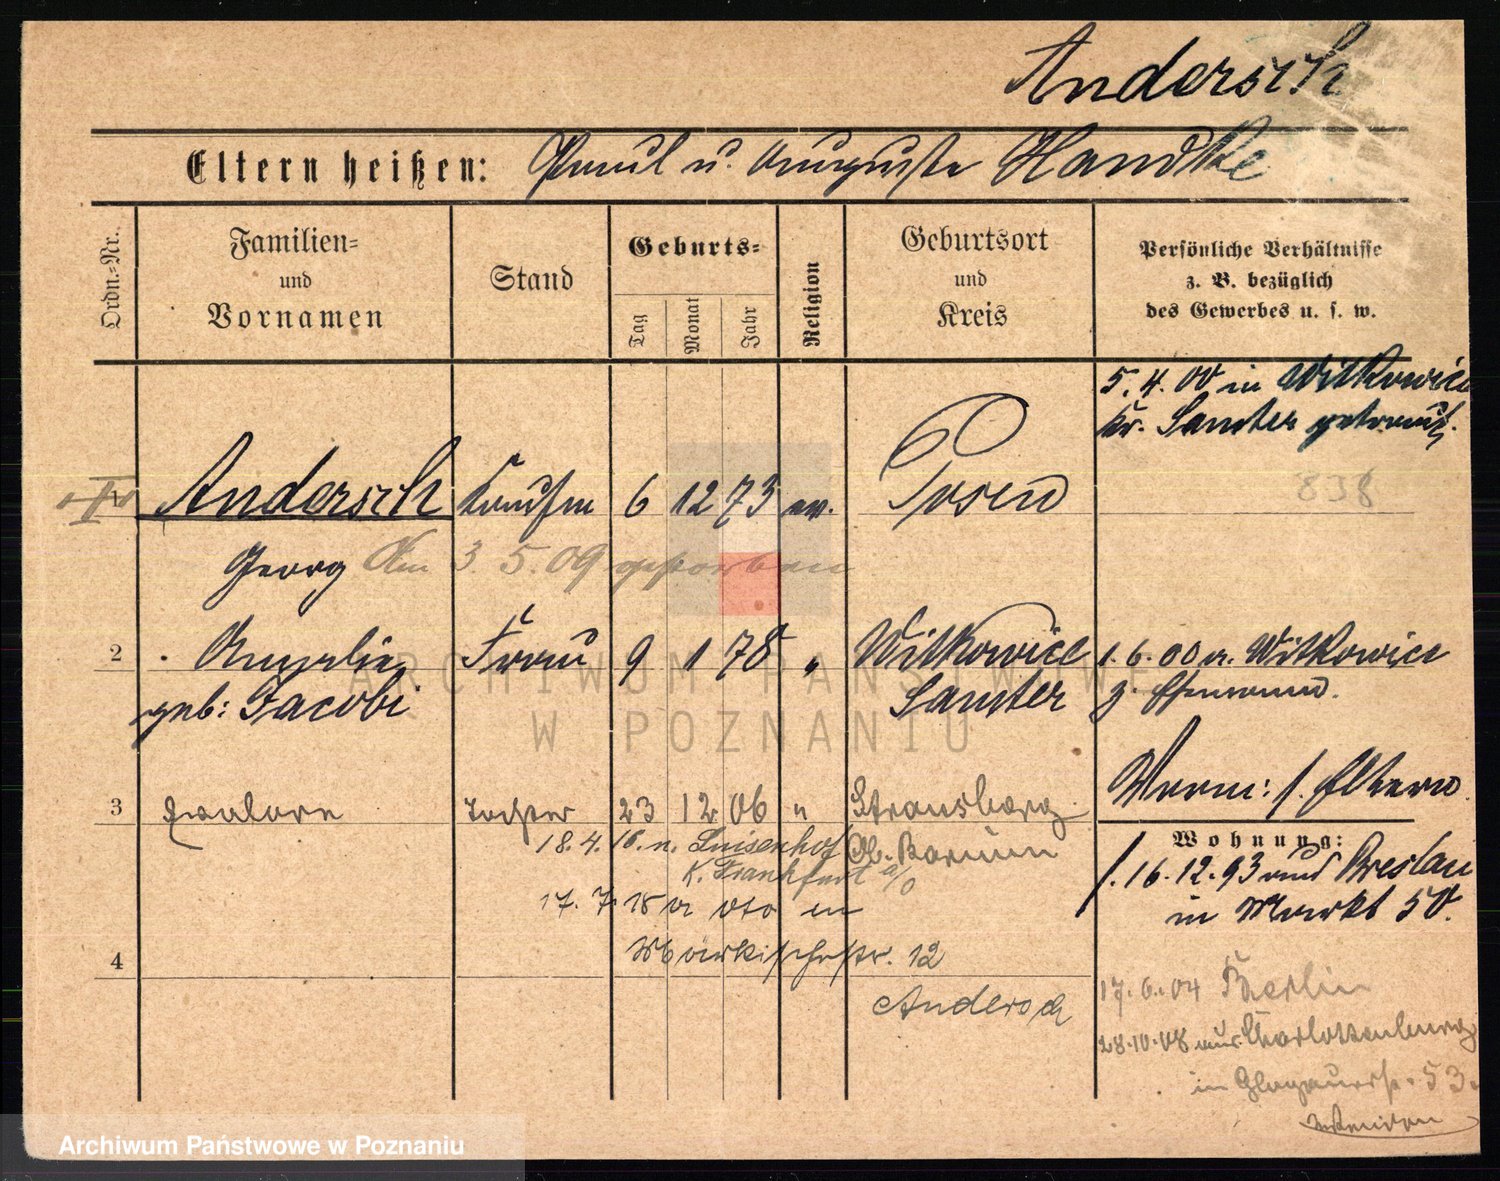 Andersch
Eltern heißen: Paul u. Auguste Handke
Ordn.=Nr.
Familien=
und
Vornamen
Stand
Geburts=
Tag
Monat
Jahr
Religion
Geburtsort
und
Kreis
Persönliche Verhältnisse
z. B. bezüglich
des Gewerbes u. s. w.
5. 4. 00 in Witkowice
Kr. Samter getraut.
838
Andersch Kaufm 6 12 73 ev. Posen
Georg Am 3. 5. 09 gestorben
2 Amalie Frau 9 1 78 " Witkowice 1. 6. 00 a. Witkowice
geb: Jacobi Samter z. Ehemann.
Verm: s. Eltern
3 Tochter 23 12 06 " Strausberg
Wohnung:
18. 4. 18. n. Luisenhof Ob. Barnim
K. Frankfurt a/O
s. 16. 12. 93 aus Breslau
in Markt 50.
17. 7. 18 in
4 Märkischestr. 12
Andersch
17. 6. 04 Berlin
28. 10. 08 aus Charlottenburg
in Glogauerstr. 53.
ARCHIWUM PAŃSTWOWE
W POZNANIU
Archiwum Państwowe w Poznaniu